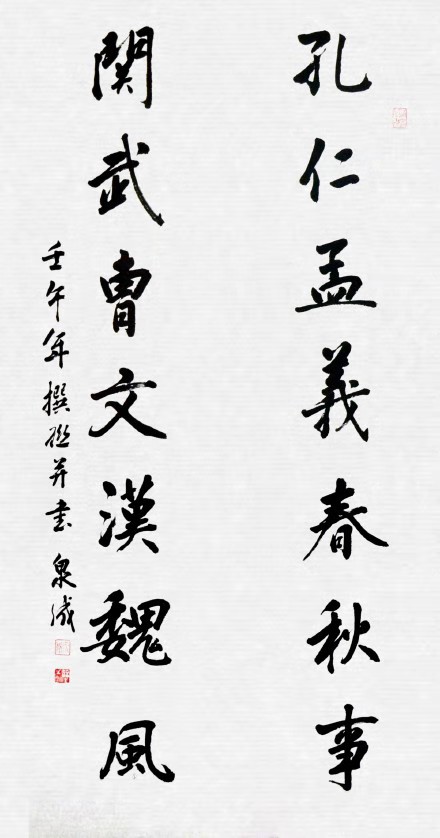 孔仁孟義春秋事
関武曹文漢魏風
壬午年撰聯并書 泉成